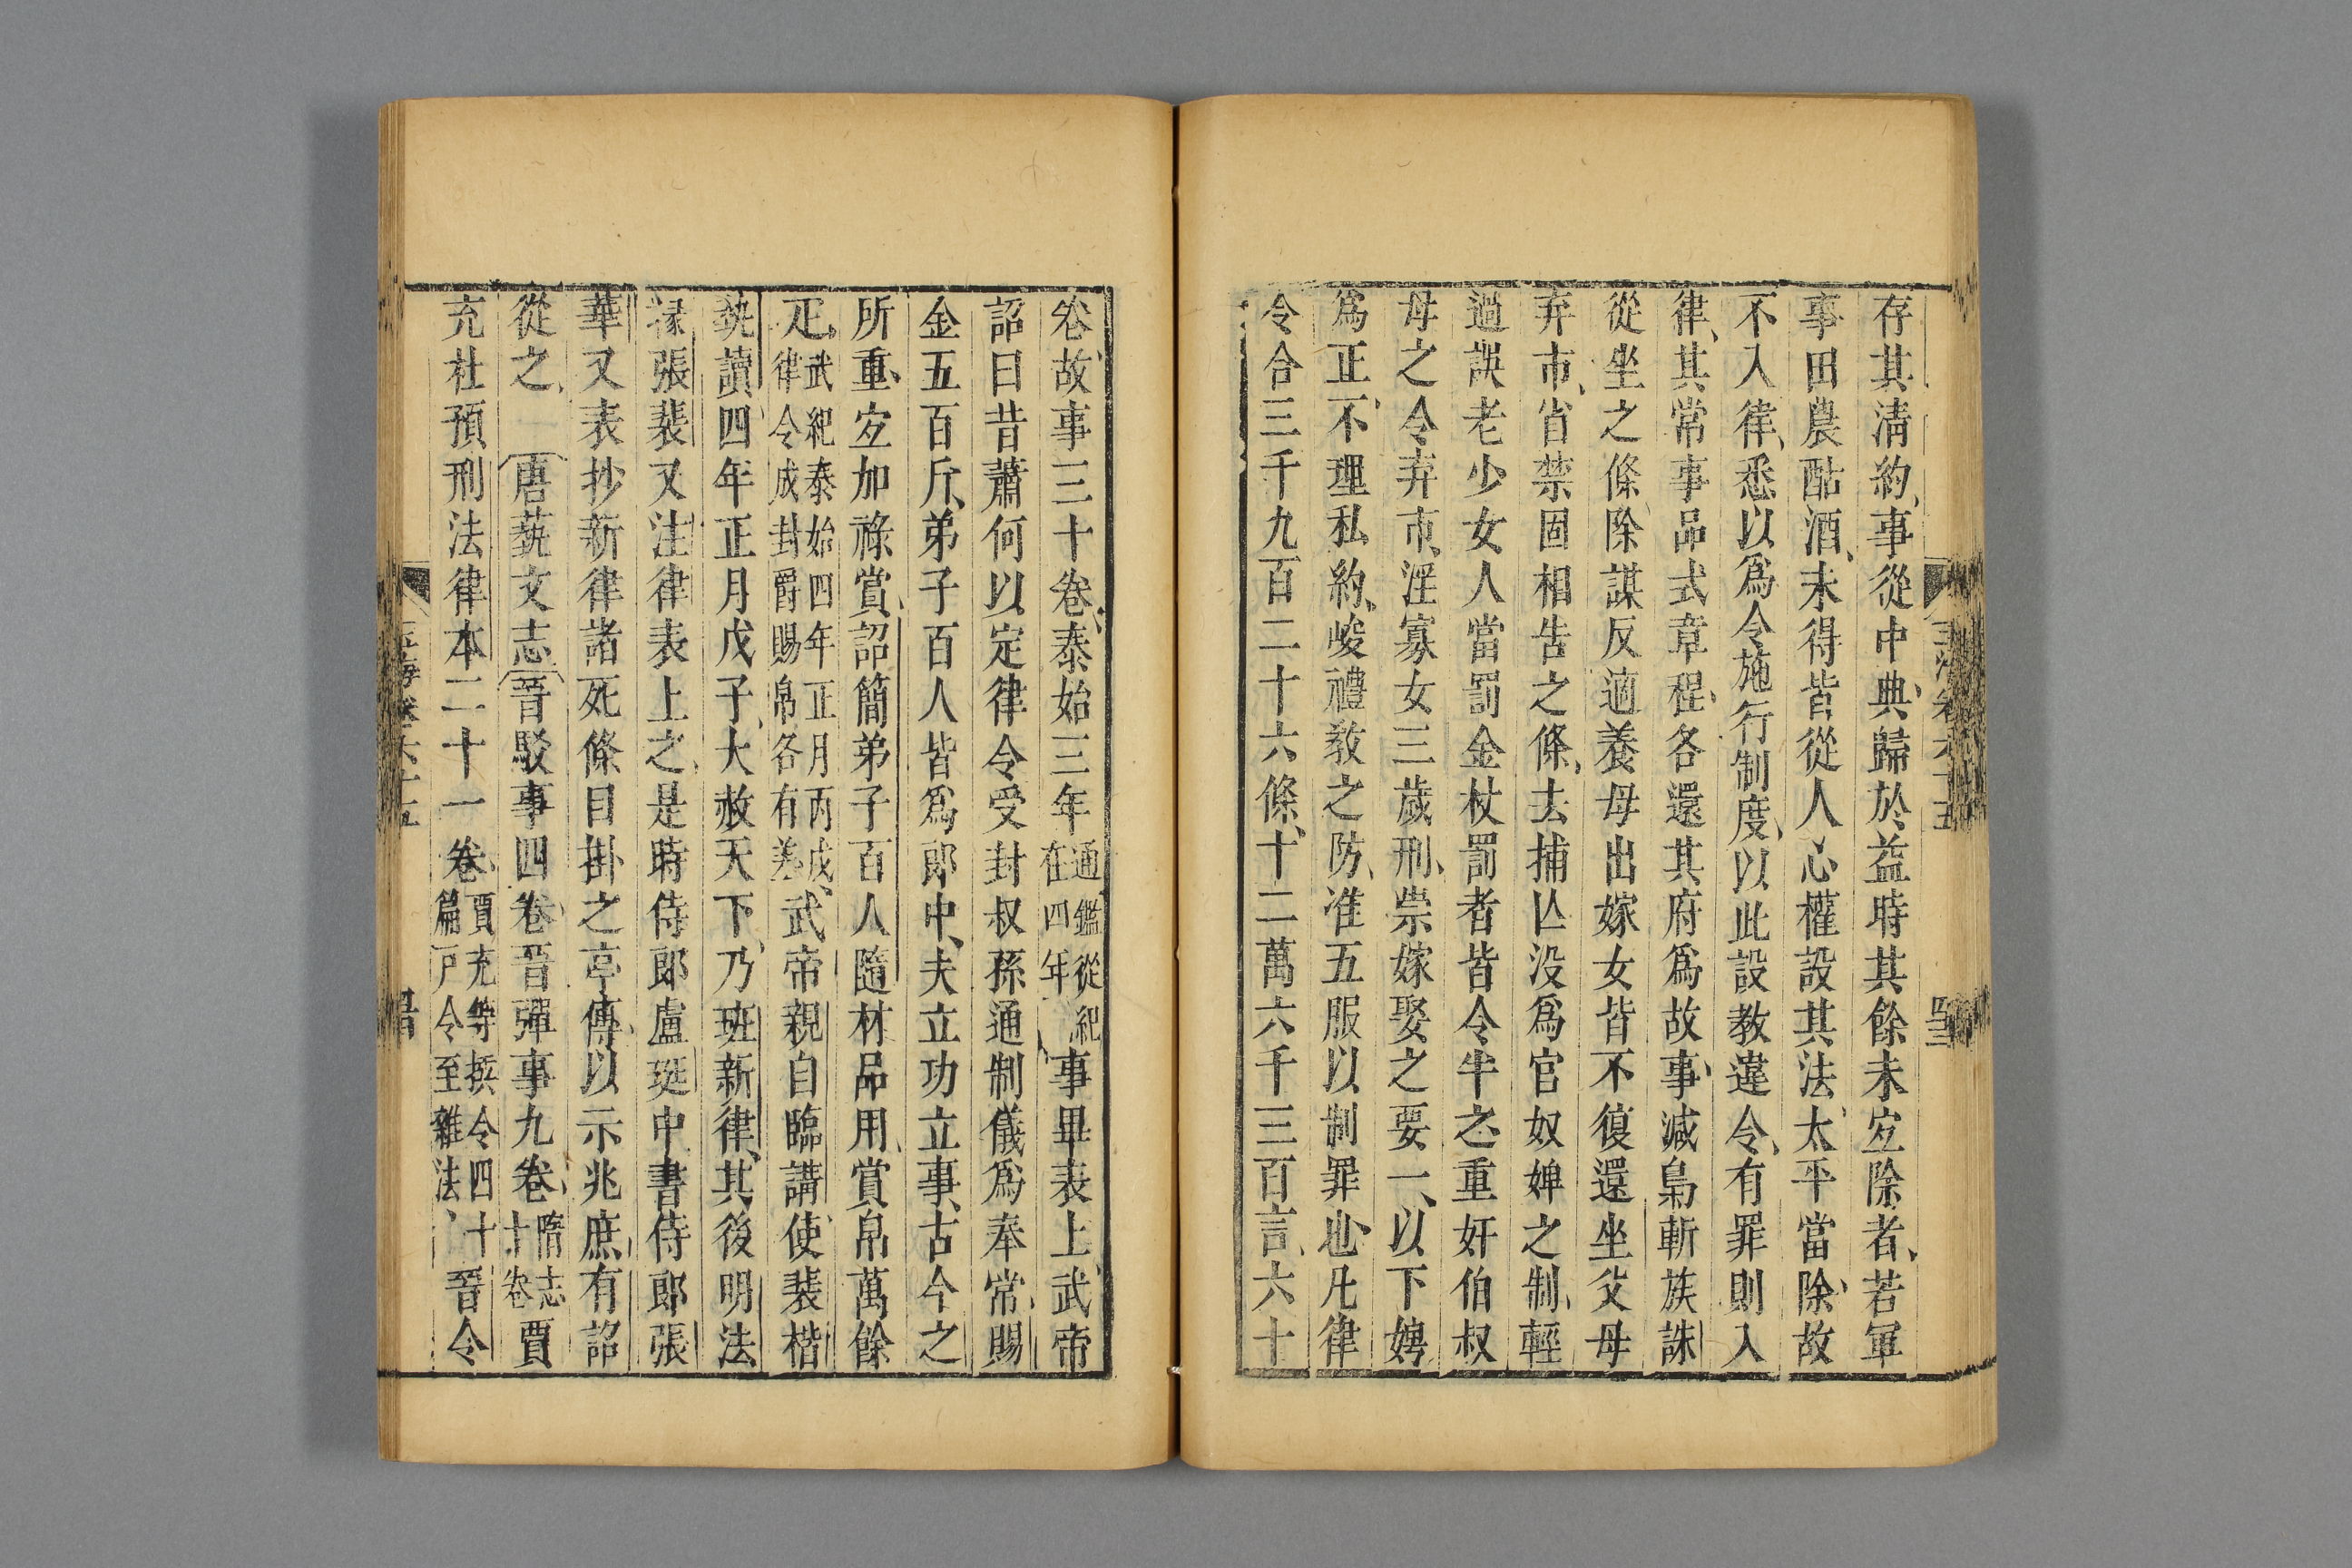 存其清約事從中典歸於益時其餘未宐除者若軍
事田農酤酒未得皆從人心權設其法太平當除故
不入律悉以爲令施行制度以此設教違令有罪則入
律其常事品式章程各還其府爲故事減梟斬族誅
從坐之條除謀反適養母出嫁女皆不復還坐父母
弃市省禁固相告之條去捕亾没爲官奴婢之制輕
過誤老少女人當罰金杖罰者皆令半之重奸伯叔
母之令弃市淫寡女三歲刑崇嫁娶之要一以下娉
爲正不理私約峻禮教之防准五服以制罪也凡律
令合三千九百二十六條十二萬六千三百言六十
卷故事三十卷泰始三年通鑑從紀在四年事畢表上武帝
詔曰昔蕭何以定律令受封叔孫通制儀爲奉常賜
金五百斤弟子百人皆爲郎中夫立功立事古今之
所重宐加祿賞詔簡弟子百人隨材品用賞帛萬餘
疋武紀泰始四年正月丙戌律令成封爵賜帛各有差武帝親自臨講使裴楷
執讀四年正月戊子大赦天下乃班新律其後明法
掾張裴又注律表上之是時侍郎盧珽中書侍郎張
華又表抄新律諸死條目掛之亭傳以示兆庶有詔
從之 唐藝文志晉駮事四卷晉彈事九卷隋志十卷賈
充杜預刑法律本二十一卷賈充等撰令四十篇戸令至雜法晉令
玉海卷六十五